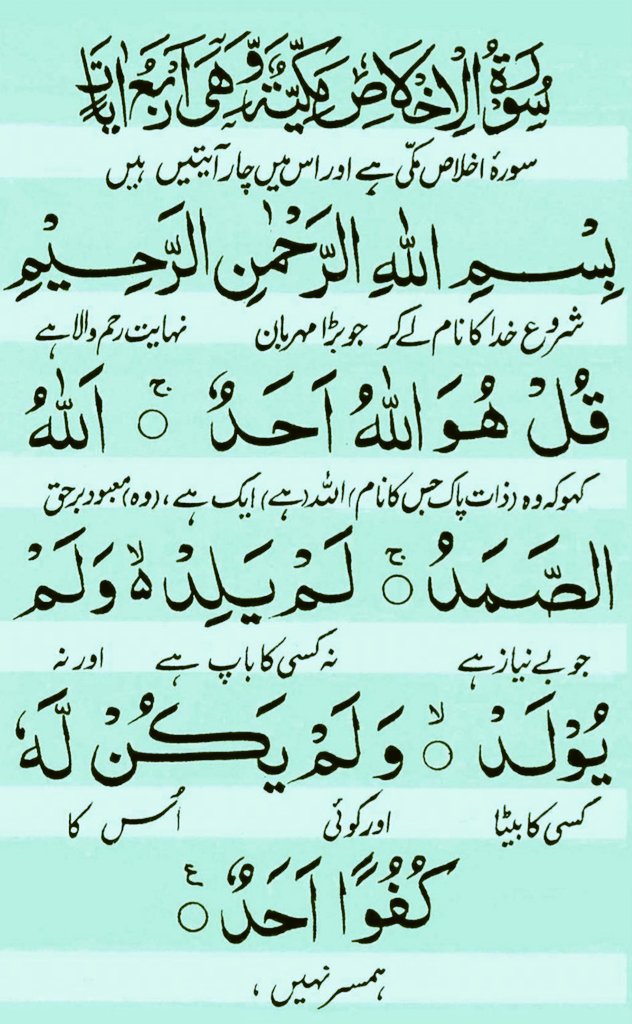 سُوْرَةُ الْاِخْلَاصِ مَكِّيَّةٌ وَّهِیَ اَرْبَعُ اٰیَاتٍ
سورۂ اخلاص مکّی ہے اور اس میں چار آیتیں ہیں
بِسْمِ اللّٰهِ الرَّحْمٰنِ الرَّحِيْمِ
شروع خدا کا نام لے کر جو بڑا مہربان نہایت رحم والا ہے
قُلْ هُوَ اللّٰهُ اَحَدٌ ۚ○ اَللّٰهُ
کہو کہ وہ (ذات پاک جس کا نام) اللہ (ہے) ایک ہے، (وہ) معبود برحق
الصَّمَدُ ۚ○ لَمْ يَلِدْ ۙ۵ وَلَمْ
جو بے نیاز ہے نہ کسی کا باپ ہے اور نہ
يُوْلَدْ ۙ○ وَلَمْ يَكُنْ لَّهٗ
کسی کا بیٹا اور کوئی اُس کا
كُفُوًا اَحَدٌ ○ع
ہمسر نہیں،